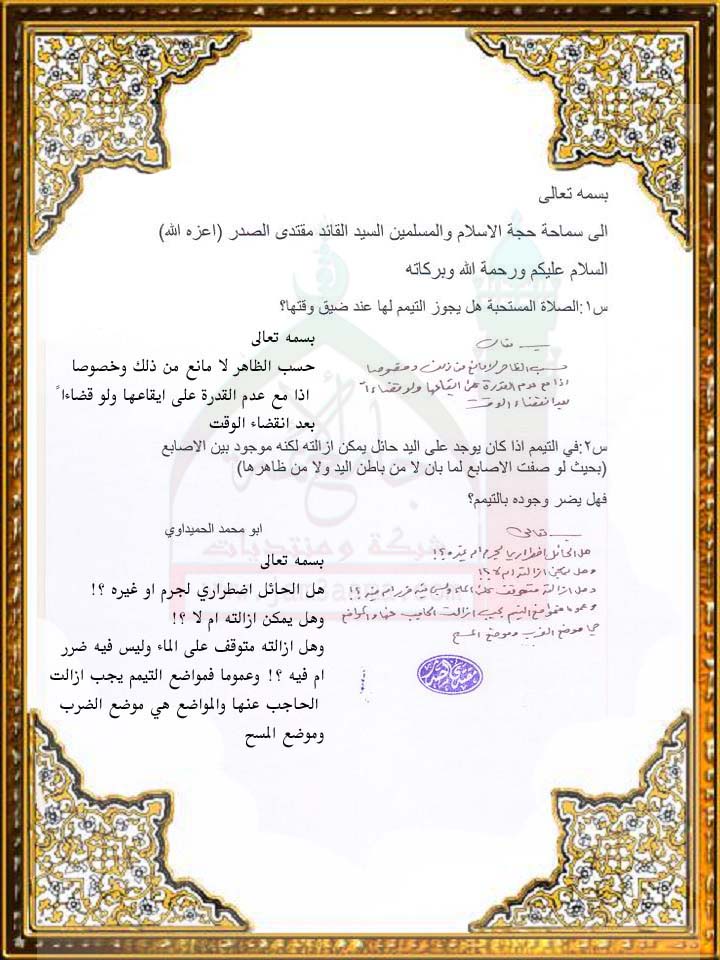 بسمه تعالى
الى سماحة حجة الاسلام والمسلمين السيد القائد مقتدى الصدر (اعزه الله)
السلام عليكم ورحمة الله وبركاته
س١:الصلاة المستحبة هل يجوز التيمم لها عند ضيق وقتها؟
بسمه تعالى
حسب الظاهر لا مانع من ذلك وخصوصا
اذا مع عدم القدرة على ايقاعها ولو قضاءاً
بعد انقضاء الوقت
حسب الظاهر لا مانع من ذلك وخصوصا
اذا مع عدم القدرة على ايقاعها ولو قضاءاً
بعد انقضاء الوقت
س٢:في التيمم اذا كان يوجد على اليد حائل يمكن ازالته لكنه موجود بين الاصابع
(بحيث لو صفت الاصابع لما بان لا من باطن اليد ولا من ظاهرها)
فهل يضر وجوده بالتيمم؟
ابو محمد الحميداوي
بسمه تعالى
هل الحائل اضطراري لجرم او غيره ؟!
وهل يمكن ازالته ام لا ؟!
وهل ازالته متوقف على الماء وليس فيه ضرر
ام فيه ؟! وعموما فمواضع التيمم يجب ازالت
الحاجب عنها والمواضع هي موضع الضرب
وموضع المسح
هل الحائل اضطراريا لجرم ام غيره ؟!
وهل يمكن ازالته ام لا ؟!
وهل ازالته متوقف على الماء وليس فيه ضرر ام فيه ؟!
وعموما فمواضع التيمم يجب ازالت الحاجب عنها والمواضع
هي موضع الضرب وموضع المسح
شبكة ومنتديات